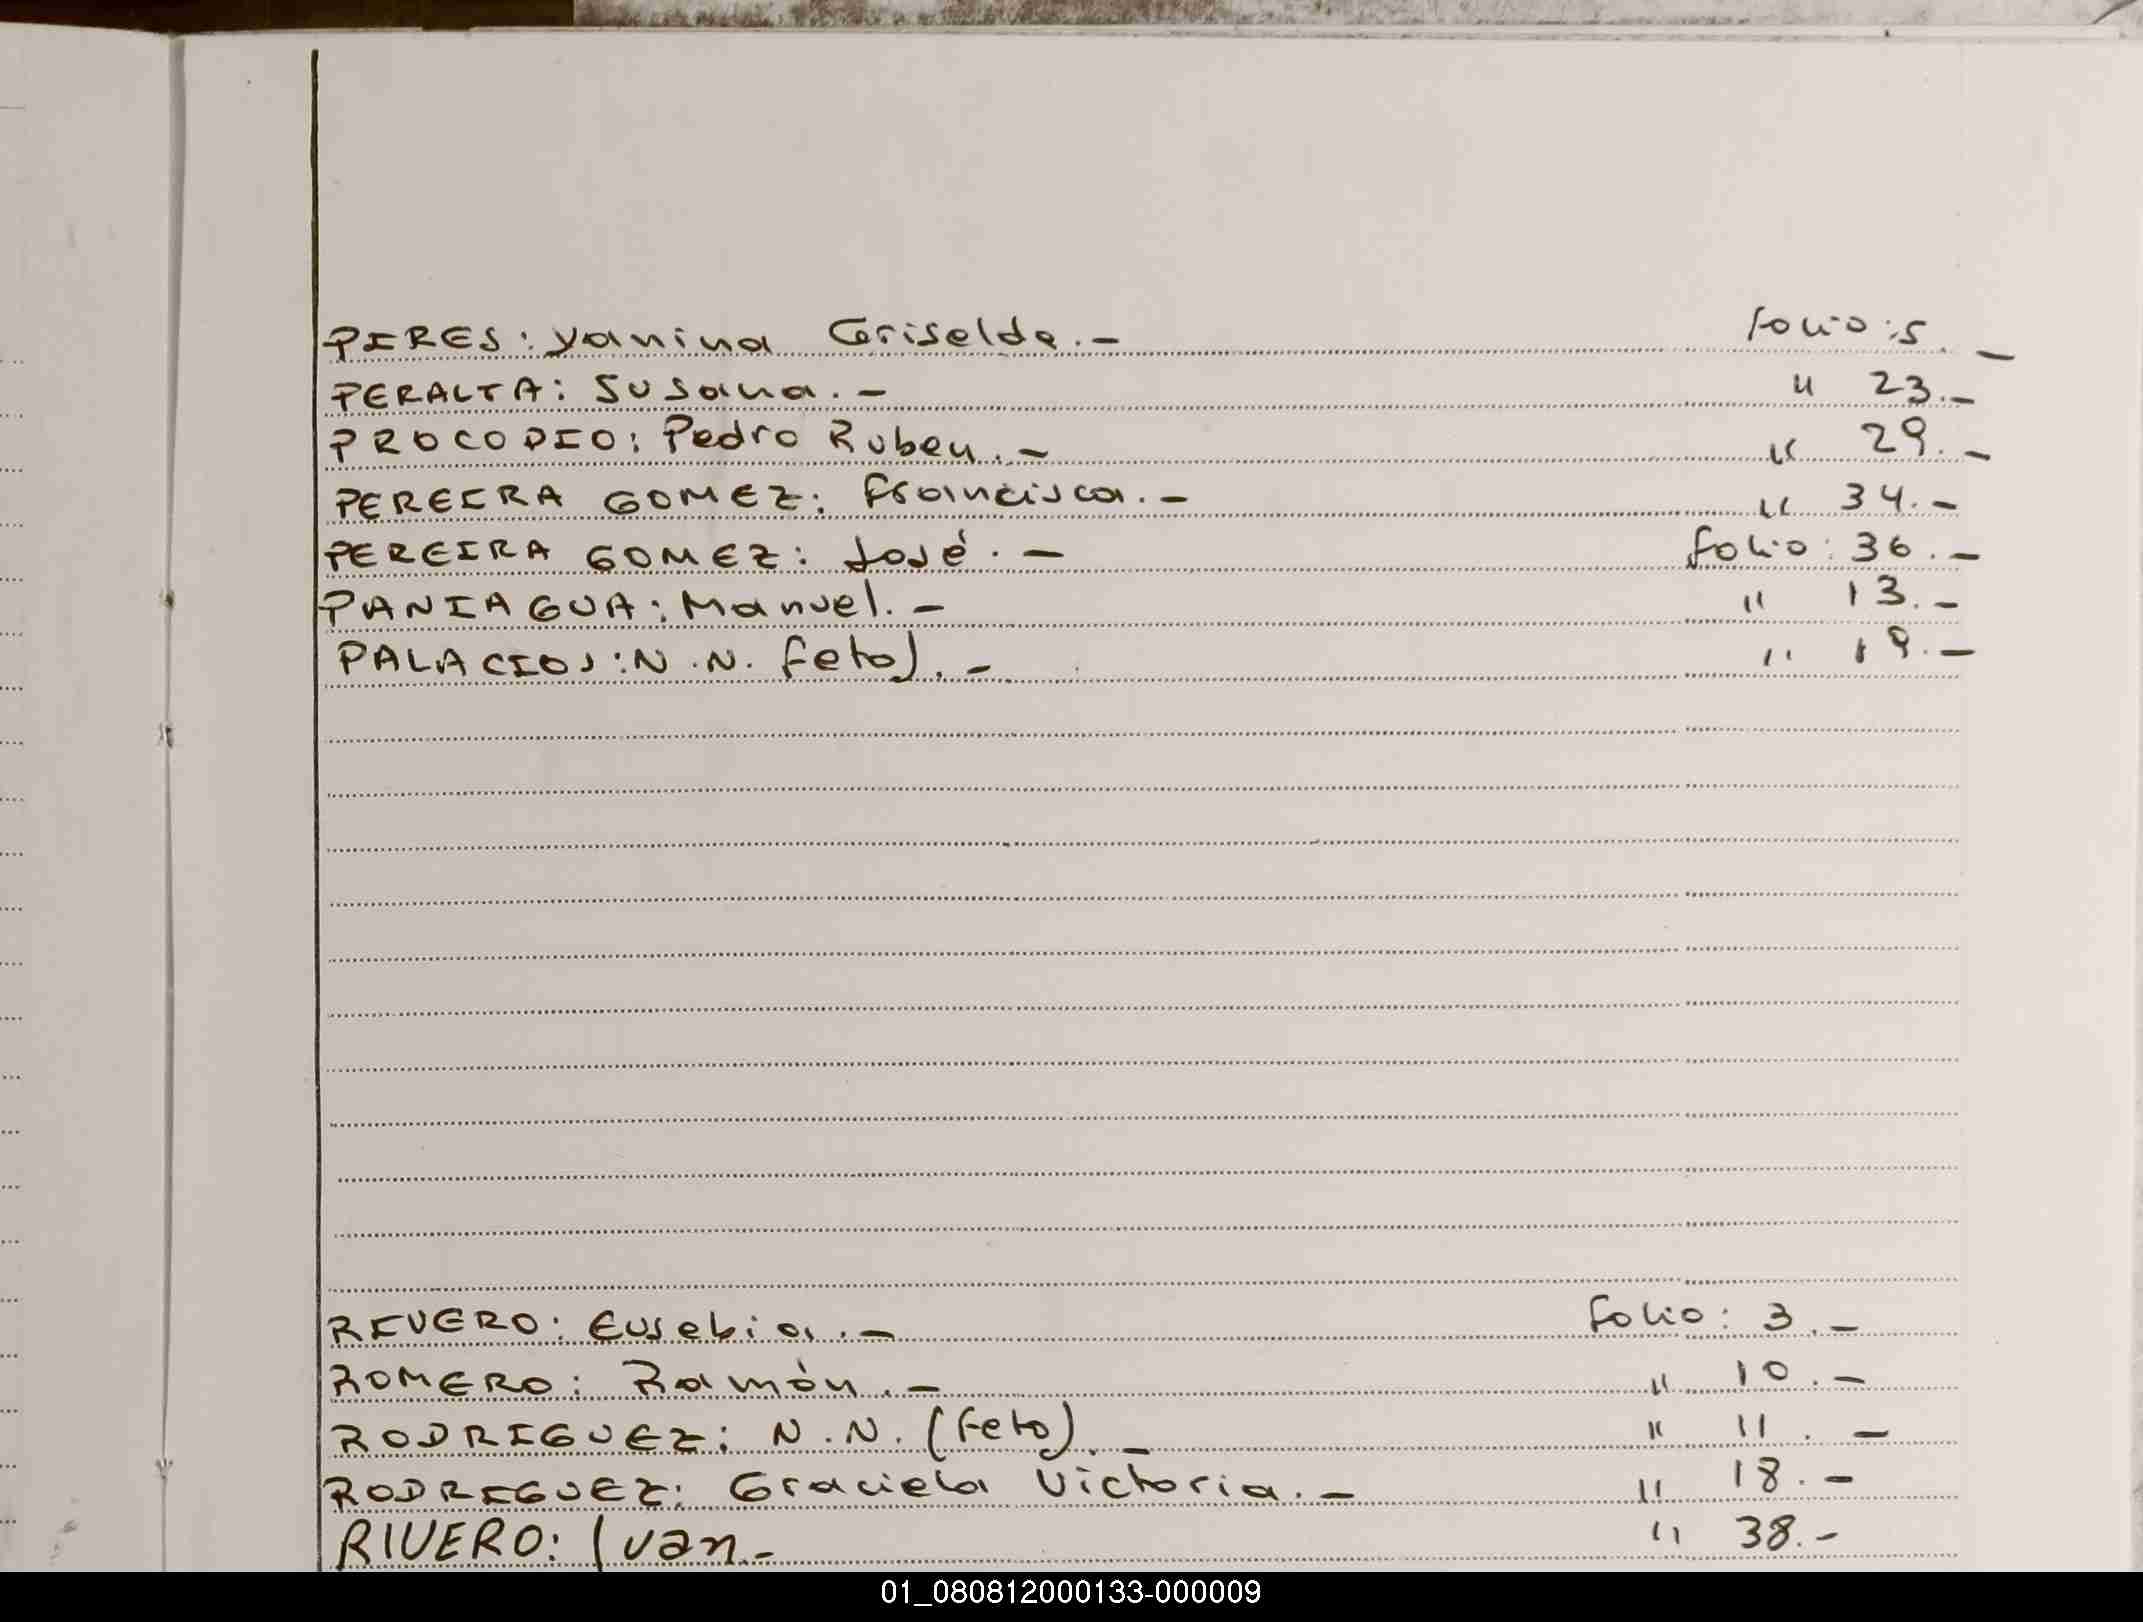 PIRES: Yanina Griselda.- folio: 5.-
PERALTA: Susana.- " 23.-
PROCOPIO: Pedro Ruben.- " 29.-
PEREIRA GOMEZ: Francisca.- " 34.-
PEREIRA GOMEZ: José.- folio: 36.-
PANIAGUA: Manuel.- " 13.-
PALACIOS: N.N. feto).- " 19.-
RIVERO: Eusebia.- folio: 3.-
ROMERO: Ramón.- " 10.-
RODRIGUEZ: N.N. (Feto).- " 11.-
RODRIGUEZ: Graciela Victoria.- " 18.-
RIVERO: Ivan.- " 38.-
01_080812000133-000009